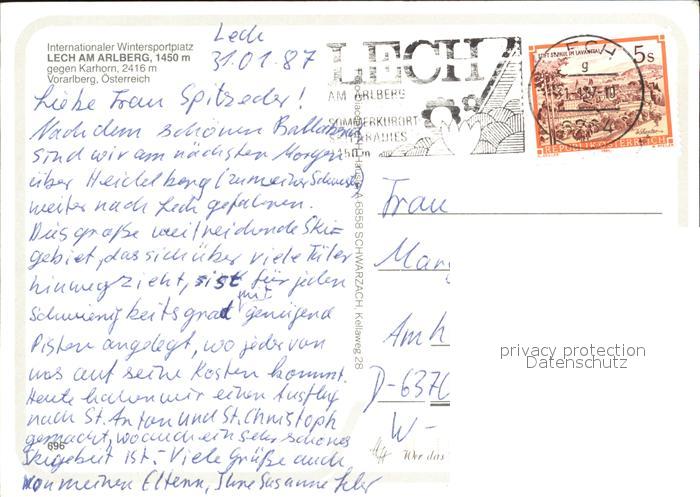 Internationaler Wintersportplatz
LECH AM ARLBERG, 1450 m
gegen Karhorn, 2416 m
Vorarlberg, Österreich
Lech
31.01.87
Liebe Frau Spitzeder!
Nach dem schönen Ballabend
sind wir am nächsten Morgen
über Heidelberg (zu meiner Schwester)
weiter nach Lech gefahren.
Das große weitreichende Ski=
gebiet, das sich über viele Täler
hinweg zieht, ist für jeden
mit
Schwierigkeitsgrad genügend
Pisten angelegt, wo jeder von
uns auf seine Kosten kommt.
Heute haben wir einen Ausflug
nach St. Anton und St. Christoph
gemacht, wo auch ein sehr schönes
Skigebiet ist. - Viele Grüße auch
von meinen Eltern, Ihre Susanne
696
LECH
AM ARLBERG
SOMMERKURORT
PARADIES
1450 m
LECH
g
STIFT ST. PAUL IM LAVANTTAL
5s
REPUBLIK ÖSTERREICH
6858 SCHWARZACH, Kellaweg 28
Frau
Am
D-6370
W-
privacy protection
Datenschutz